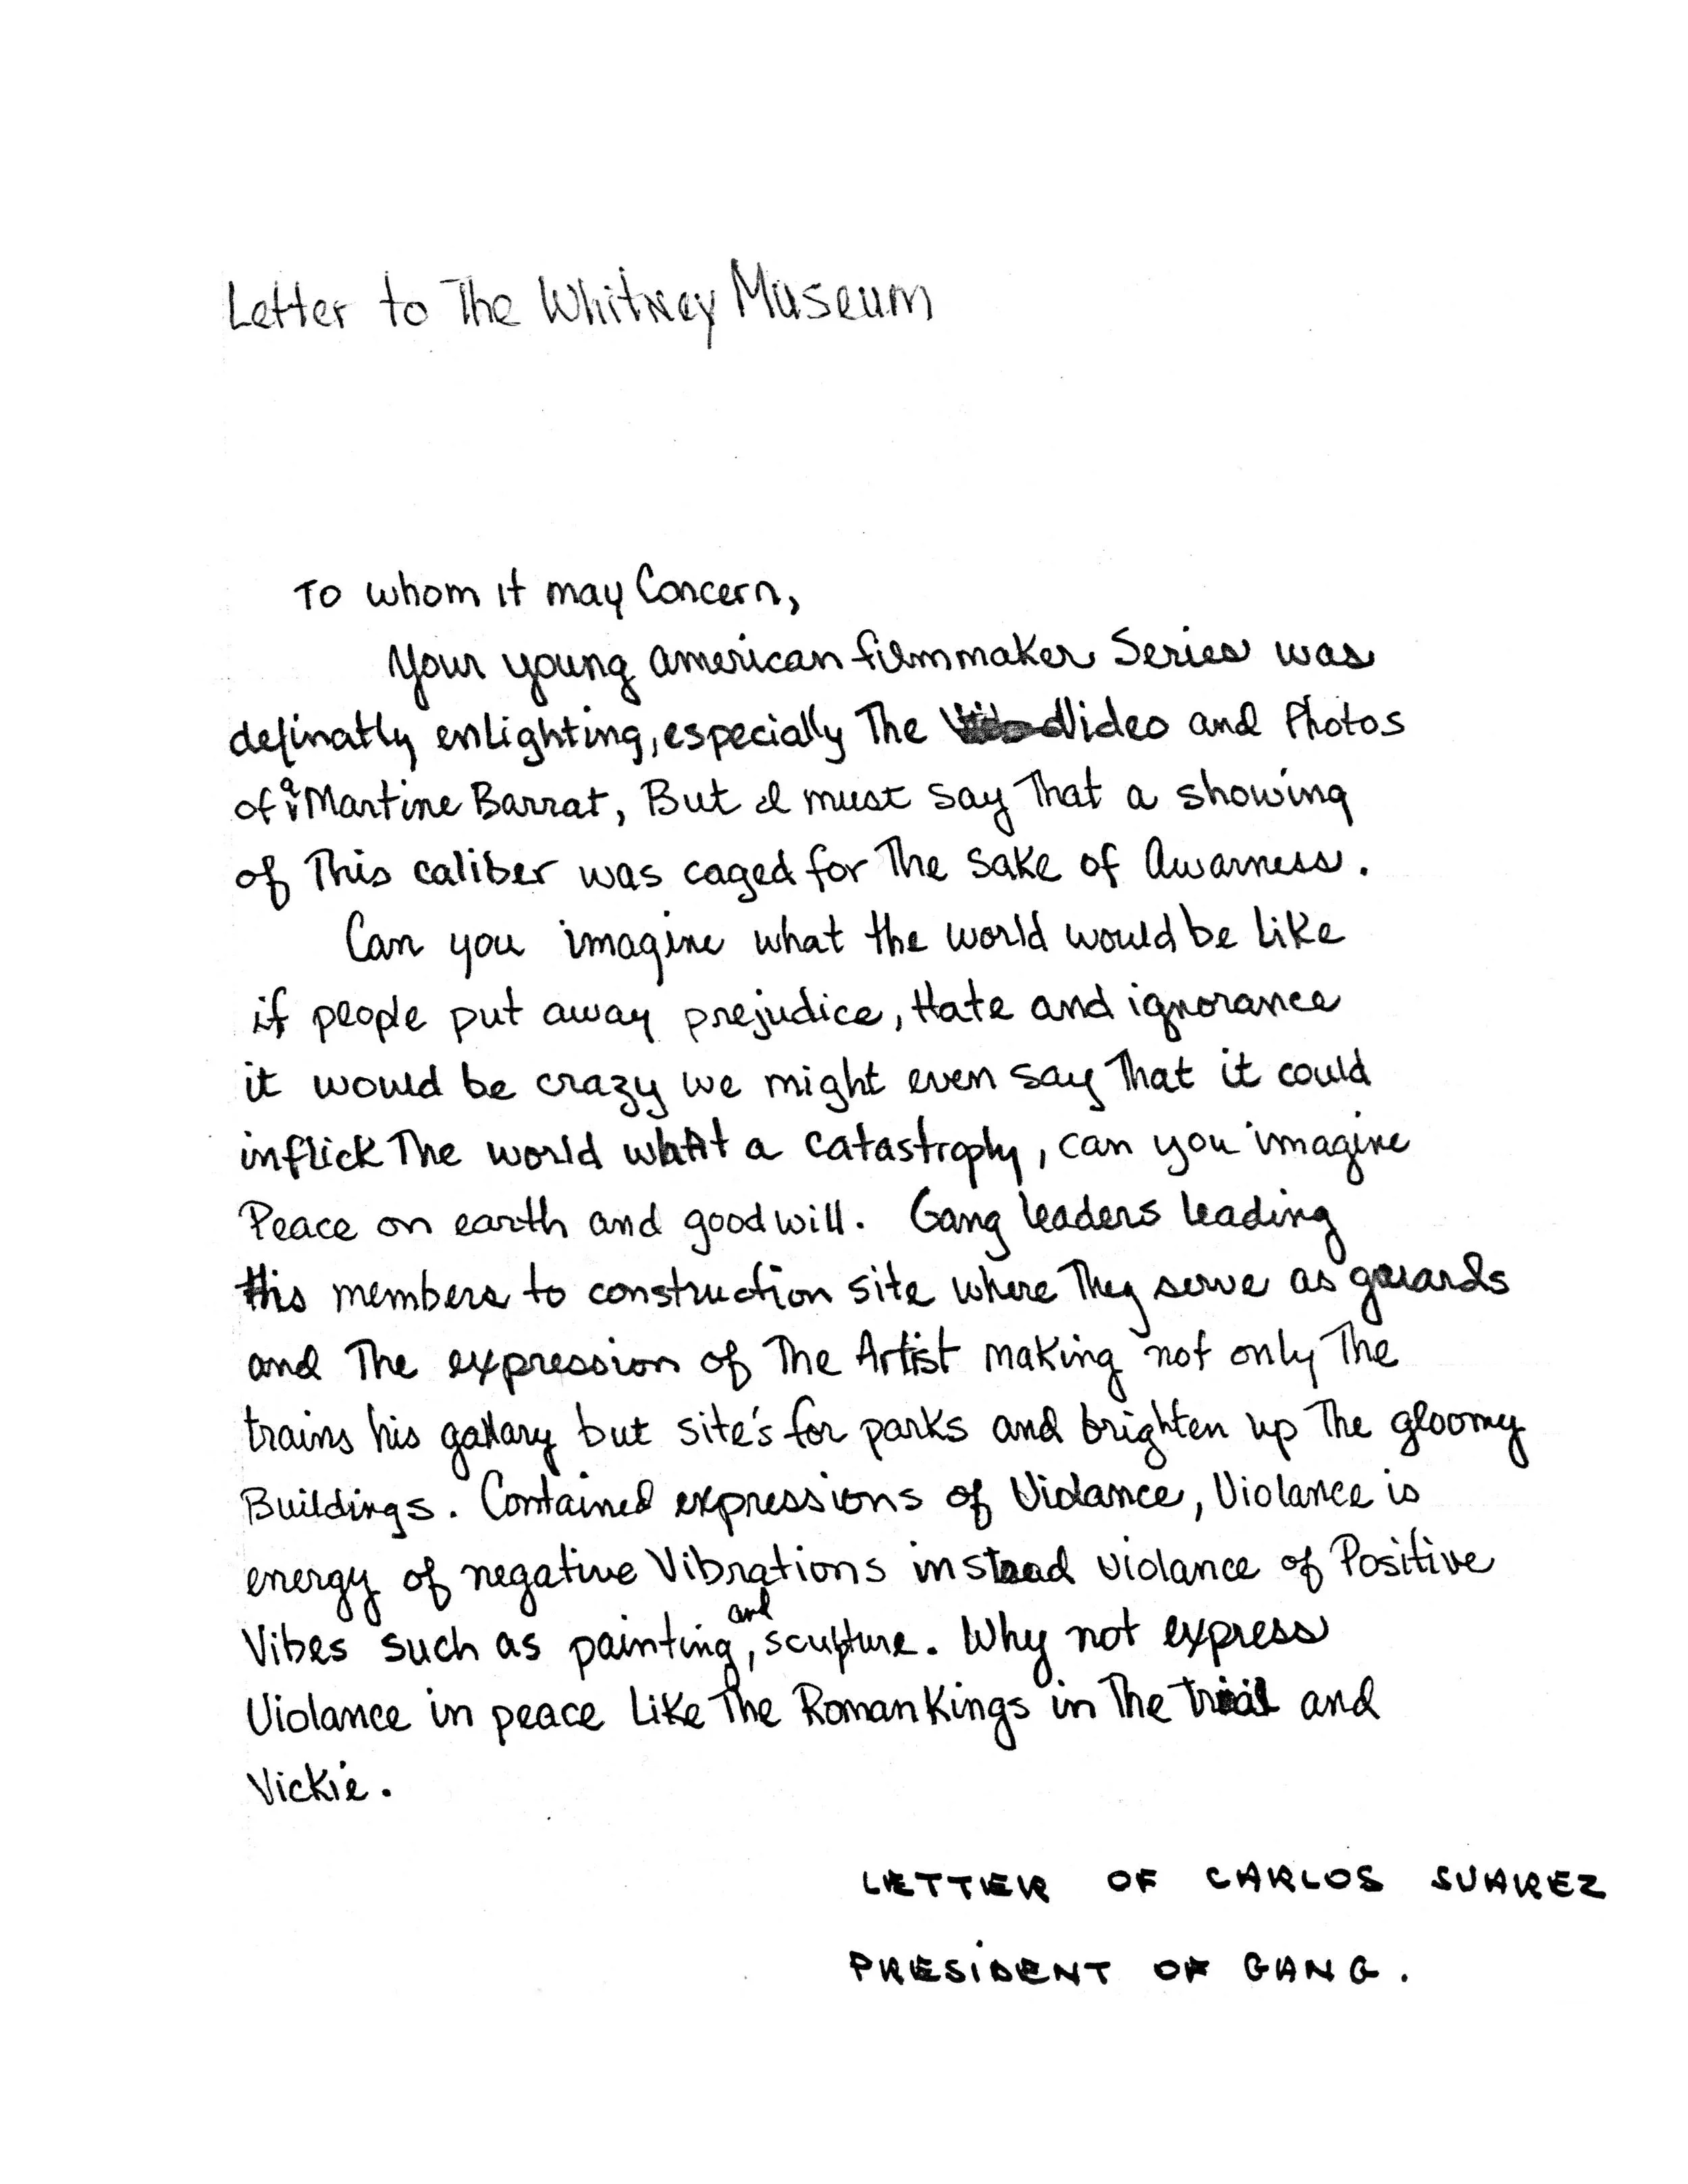 Letter to The Whitney Museum
To whom it may Concern,
Your young american filmmaker Series was
definatly enlighting, especially The Video and Photos
of Martine Barrat, But I must say That a showing
of This caliber was caged for The Sake of Awarness.
Can you imagine what the world would be like
if people put away prejudice, Hate and ignorance
it would be crazy we might even say That it could
inflick The world what a catastrophy, can you imagine
Peace on earth and good will. Gang leaders leading
his members to construction site where They serve as guards
and The expression of The Artist making not only The
trains his gallary but site's for parks and brighten up The gloomy
Buildings. Contained expressions of Violance, Violance is
energy of negative Vibrations instead violance of Positive
Vibes such as painting, and sculpture. Why not express
Violance in peace Like The Roman Kings in The trial and
Vickie.
LETTER OF CARLOS SUAREZ
PRESIDENT OF GANG.